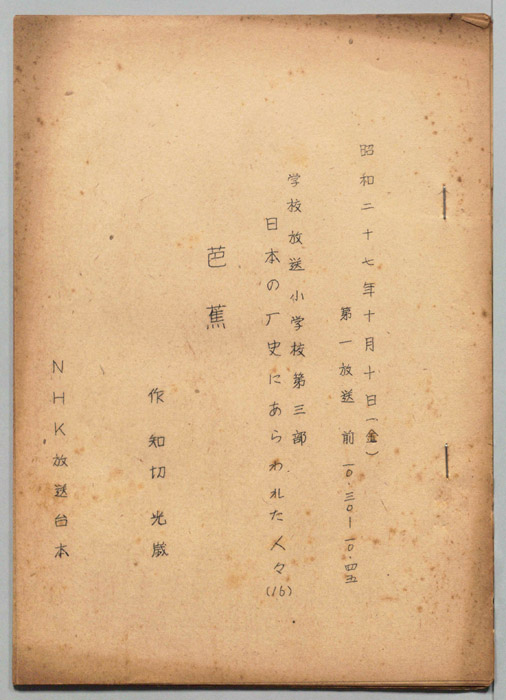 昭和二十七年十月十日(金)
第一放送 前一〇.三〇―一〇.四五
学校放送小学校第三部
日本の厂史にあらわれた人々(16)
芭蕉
作 知切光歳
NHK放送台本